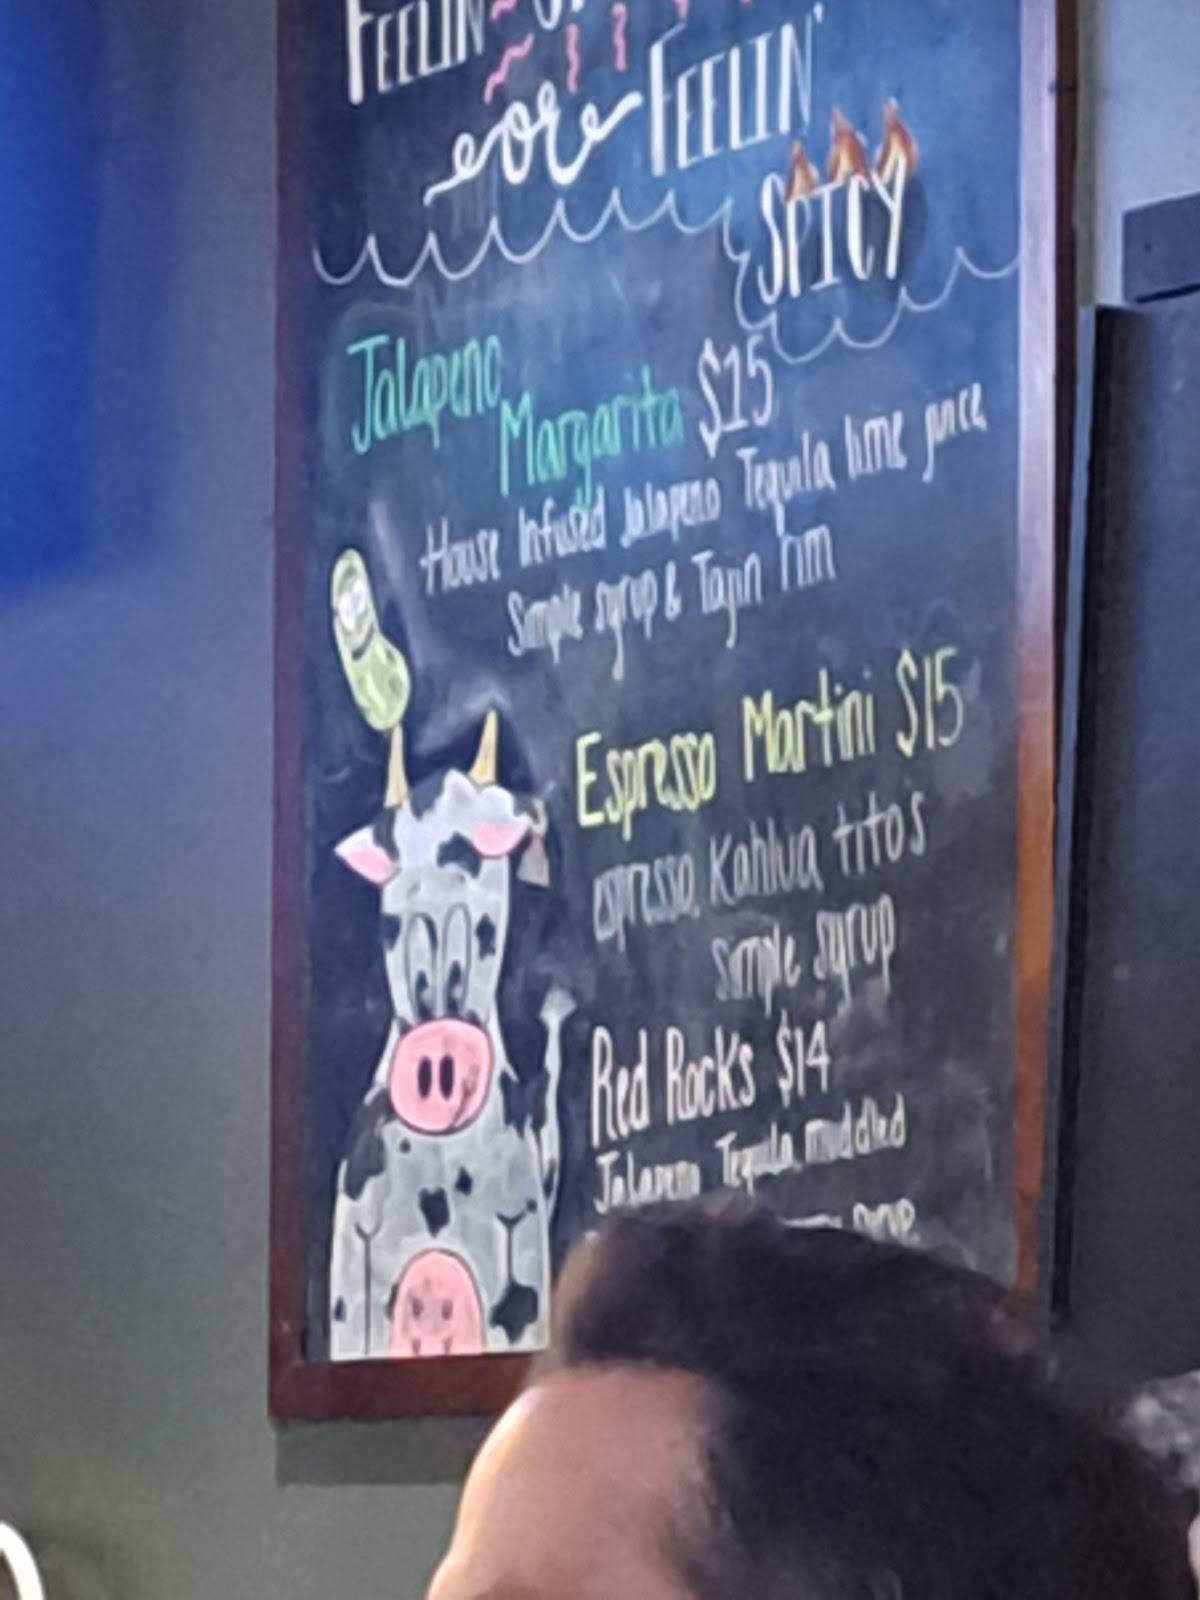 FEELIN'
or FEELIN'
SPICY
Jalapeno
Margarita $15
House Infused Jalapeno Tequila lime juice,
Simple syrup & Tajin rim
Espresso Martini $15
espresso, Kahlua titos
simple syrup
Red Rocks $14
Jalapeno Tequila, muddled
syrup